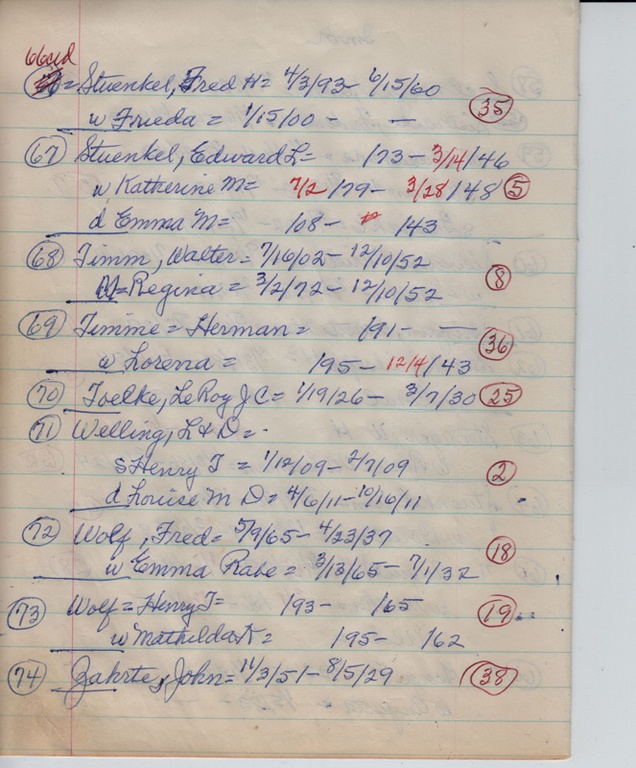 66 Stuenkel, Fred H = 4/3/93 - 6/15/60
w Frieda = 1/15/00 - — 35
67 Stuenkel, Edward L = /73 - 3/14/46
w Katherine M = 7/2/79 - 3/28/48 5
d Emma M = /08 - /43
68 Timm, Walter = 7/16/02 - 12/10/52
M = Regina = 3/2/72 - 12/10/52 8
69 Timme = Herman = /91 - —
w Lorena = /95 - 12/4/43 36
70 Toelke, LeRoy J C = 1/19/26 - 3/7/30 25
71 Welling, L & D =
s Henry T = 1/12/09 - 2/7/09 2
d Louise M D = 4/6/11 - 10/16/11
72 Wolf, Fred = 5/9/65 - 4/23/37
w Emma Rabe = 3/13/65 - 7/1/32 18
73 Wolf = Henry T = /93 - /65 19
w Mathilda K = /95 - /62
74 Zahrte, John = 11/3/51 - 8/5/29 38